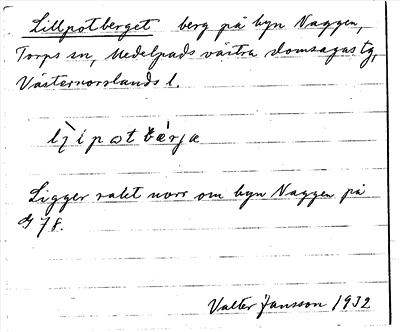 Lillpotberget berg på byn Naggen,
Torps sn, Medelpads västra domsagas tg,
Västernorrlands l.
Ligger rakt norr om byn Naggen på
78.
Valter Jansson 1932